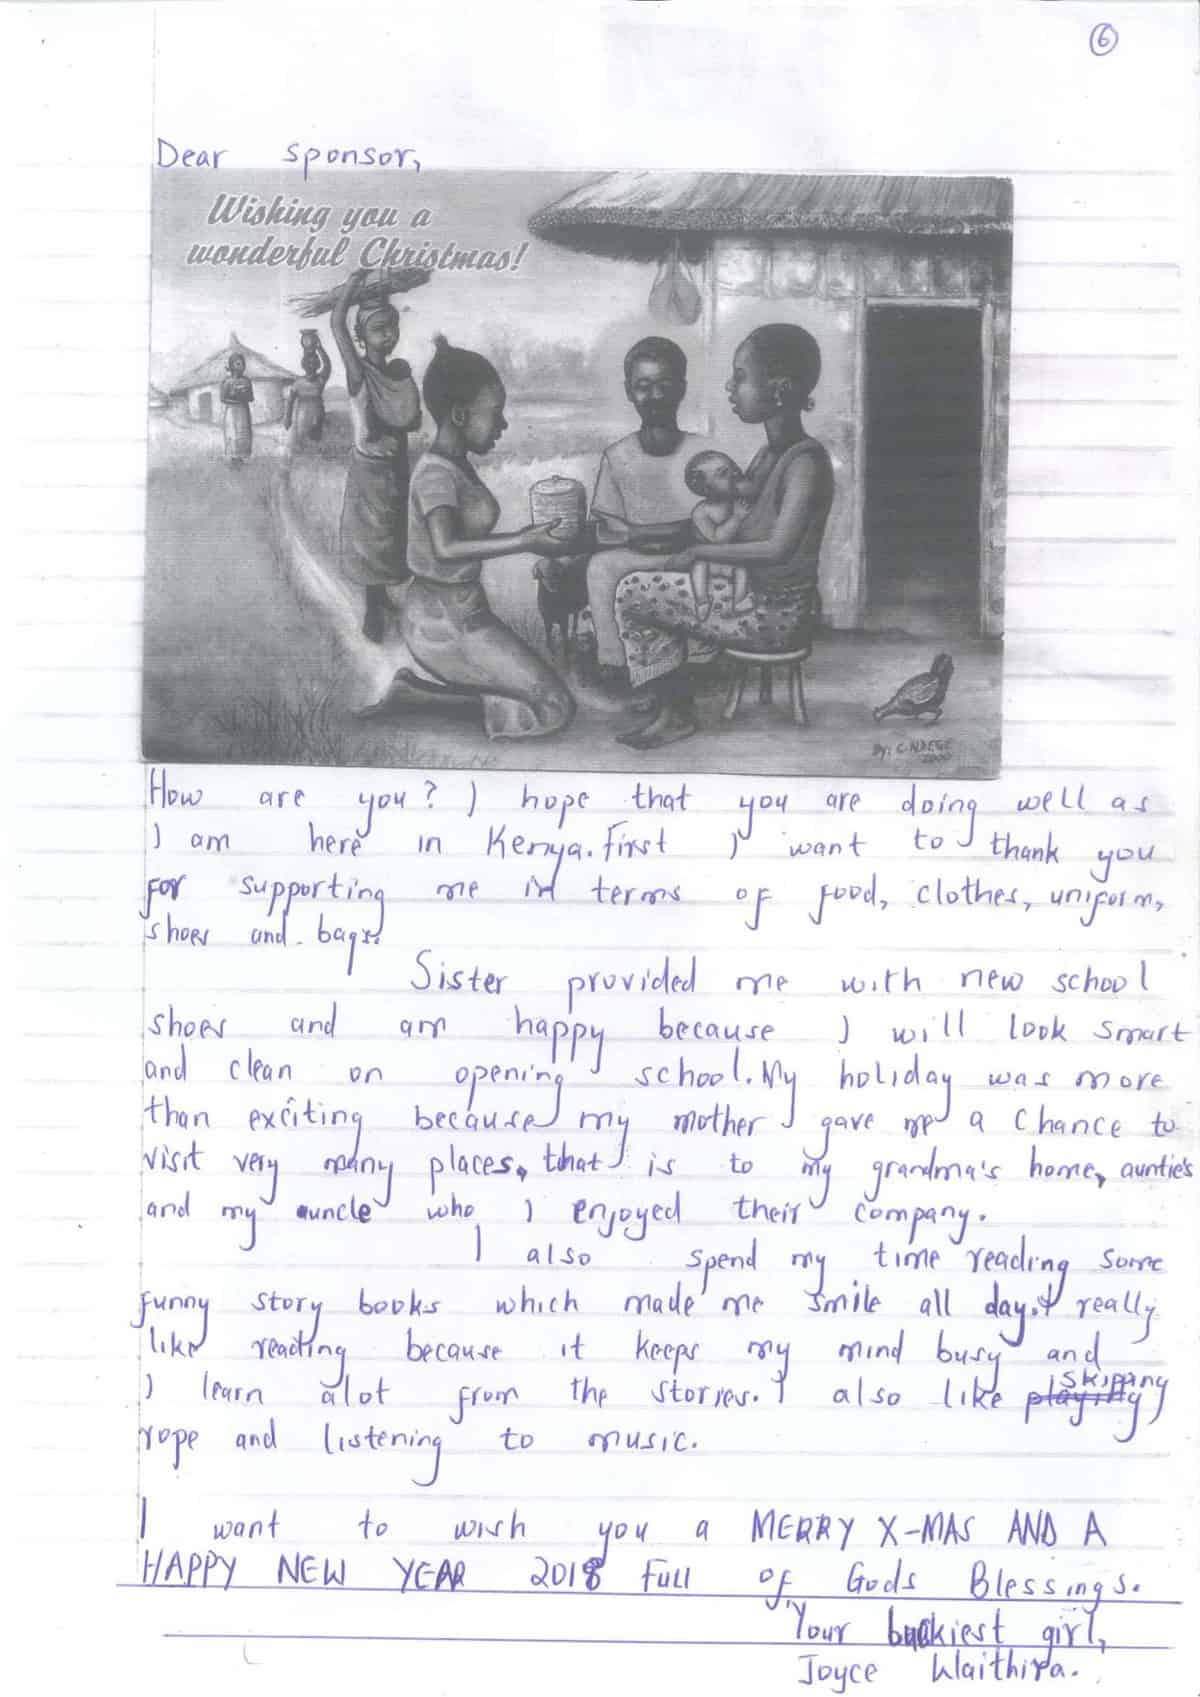 6
Dear sponsor,
Wishing you a
wonderful Christmas!
By: C. NDEGE
2000
How are you? I hope that you are doing well as
I am here in Kenya. First I want to thank you
for supporting me in terms of food, clothes, uniform,
shoes and bags.
Sister provided me with new school
shoes and am happy because I will look smart
and clean on opening school. My holiday was more
than exciting because my mother gave me a chance to
visit very many places, that is to my grandma's home, auntie's
and my auncle who I enjoyed their company.
I also spend my time reading some
funny story books which made me smile all day. I really
like reading because it keeps my mind busy and
I learn alot from the stories. I also like playing skipping
rope and listening to music.
I want to wish you a MERRY X-MAS AND A
HAPPY NEW YEAR 2018 Full of Gods Blessings.
Your girl,
Joyce Waithira.